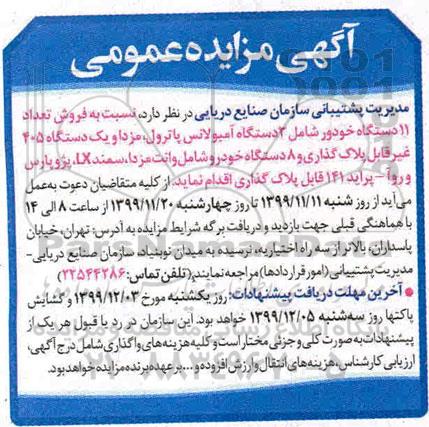 آگهی مزایده عمومی
مدیریت پشتیبانی سازمان صنایع دریایی در نظر دارد، نسبت به فروش تعداد
۱۱ دستگاه خودرو شامل ۲ دستگاه آمبولانس پاترول، مزدا و یک دستگاه ۴۰۵
غیر قابل پلاک گذاری و ۸ دستگاه خودرو شامل وانت مزدا، سمند LX، پژو پارس
و روآ – پراید ۱۴۱ قابل پلاک گذاری اقدام نماید. از کلیه متقاضیان دعوت به عمل
می آید از روز شنبه ۱۳۹۹/۱۱/۱۱ تا روز چهارشنبه ۱۳۹۹/۱۱/۲۰ از ساعت ۸ الی ۱۴
با هماهنگی قبلی جهت بازدید و دریافت برگه شرایط مزایده به آدرس: تهران، خیابان
پاسداران، بالاتر از سه راه اختیاریه، نرسیده به میدان نوبنیاد، سازمان صنایع دریایی-
مدیریت پشتیبانی (امور قراردادها) مراجعه نمایند. (تلفن تماس: ۲۲۵۴۴۲۸۶)
● آخرین مهلت دریافت پیشنهادات: روز یکشنبه مورخ ۱۳۹۹/۱۲/۰۳ و گشایش
پاکتها روز سه شنبه ۱۳۹۹/۱۲/۰۵ خواهد بود. این سازمان در رد یا قبول هر یک از
پیشنهادات به صورت کلی و جزئی مختار است و کلیه هزینه های واگذاری شامل درج آگهی،
ارزیابی کارشناس، هزینه های انتقال و ارزش افزوده و... بر عهده برنده مزایده خواهد بود.
ParsNamadData